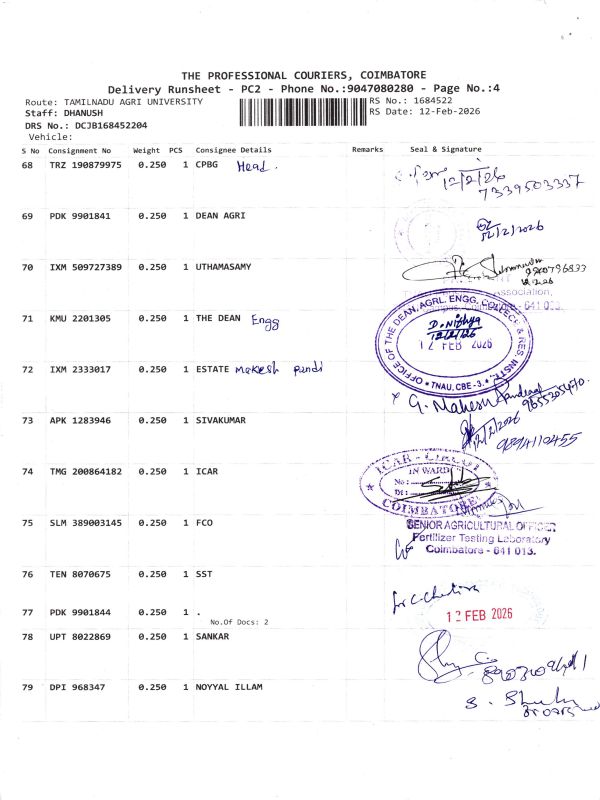 THE PROFESSIONAL COURIERS, COIMBATORE
Delivery Runsheet - PC2 - Phone No.:9047080280 - Page No.:4
Route: TAMILNADU AGRI UNIVERSITY
RS No.: 1684522
Staff: DHANUSH
RS Date: 12-Feb-2026
DRS No.: DCJB168452204
Vehicle:
S No Consignment No Weight PCS Consignee Details Remarks Seal & Signature
68 TRZ 190879975 0.250 1 CPBG Head.
12/2/26
7339503337
69 PDK 9901841 0.250 1 DEAN AGRI
12/2/2026
70 IXM 509727389 0.250 1 UTHAMASAMY
Association,
641 003.
71 KMU 2201305 0.250 1 THE DEAN Engg
OFFICE OF THE DEAN, AGRL. ENGG. COLLEGE & RES. INSTT.
D. Nithya
12/2/26
12 FEB 2026
* TNAU, CBE-3. *
72 IXM 2333017 0.250 1 ESTATE Makesh pandi
G. Mahesh
9655205470.
73 APK 1283946 0.250 1 SIVAKUMAR
12/2/2026
9894110455
74 TMG 200864182 0.250 1 ICAR
IN WARD
No :
Dt :
COIMBATORE
75 SLM 389003145 0.250 1 FCO
SENIOR AGRICULTURAL OFFICER
Fertilizer Testing Laboratory
Coimbatore - 641 013.
76 TEN 8070675 0.250 1 SST
77 PDK 9901844 0.250 1 .
No.Of Docs: 2
12 FEB 2026
78 UPT 8022869 0.250 1 SANKAR
79 DPI 968347 0.250 1 NOYYAL ILLAM